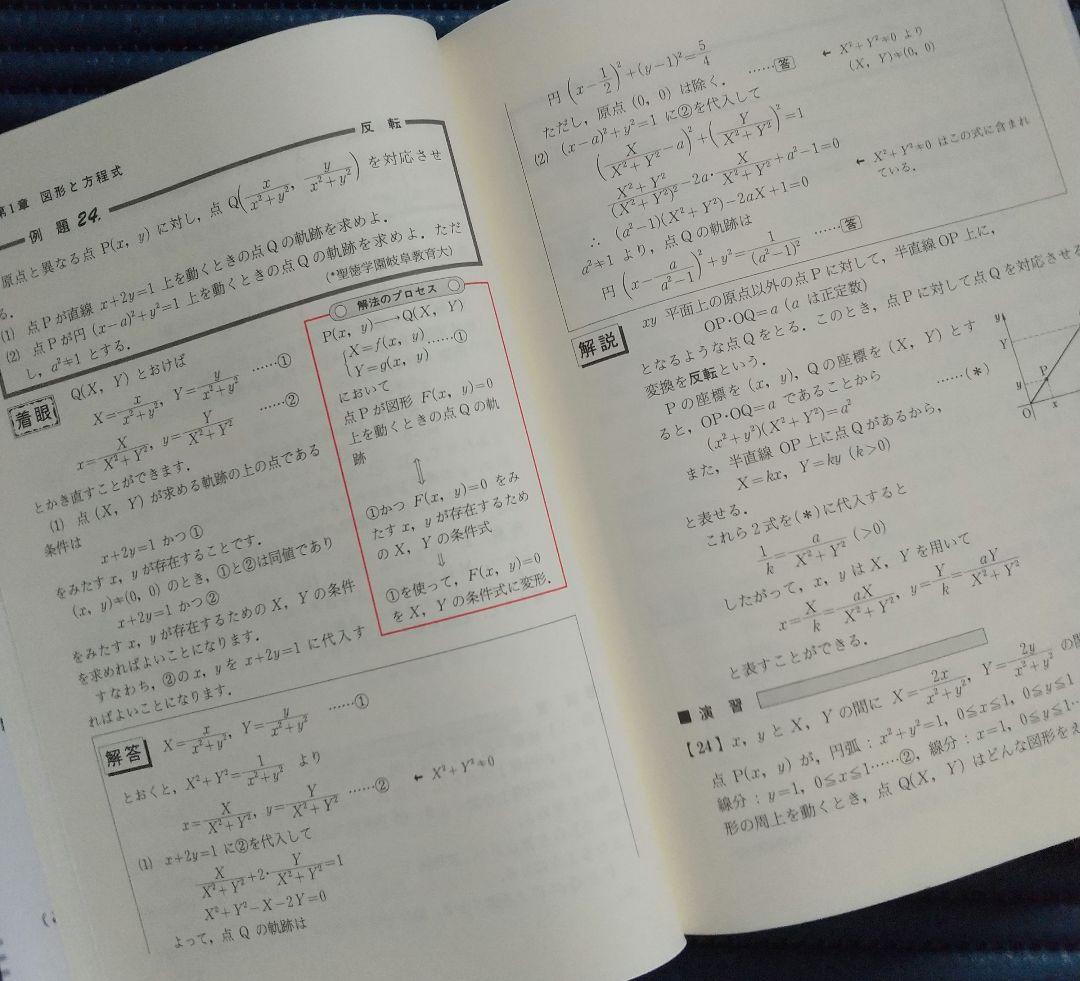 第1章 図形と方程式
例題 24.
反転
原点と異なる点 P(x, y) に対し，点 Q(x/(x²+y²), y/(x²+y²)) を対応させ
る．
(1) 点 P が直線 x+2y=1 上を動くときの点 Q の軌跡を求めよ．
(2) 点 P が円 (x−a)²+y²=1 上を動くときの点 Q の軌跡を求めよ．ただ
し，a²≠1 とする．
(*聖徳学園岐阜教育大)
着眼
Q(X, Y) とおけば
X=x/(x²+y²), Y=y/(x²+y²) ……①
x=X/(X²+Y²), y=Y/(X²+Y²) ……②
とかき直すことができます．
(1) 点 (X, Y) が求める軌跡の上の点である
条件は
x+2y=1 かつ①
をみたす x, y が存在することです．
(x, y)≠(0, 0) のとき，①と②は同値であり
x+2y=1 かつ②
をみたす x, y が存在するための X, Y の条件
を求めればよいことになります．
すなわち，②の x, y を x+2y=1 に代入す
ればよいことになります．
解法のプロセス
P(x, y)⟶Q(X, Y)
{X=f(x, y)
Y=g(x, y) ……①
において
点 P が図形 F(x, y)=0
上を動くときの点 Q の軌
跡
⇕
①かつ F(x, y)=0 をみ
たす x, y が存在するため
の X, Y の条件式
⇓
①を使って，F(x, y)=0
を X, Y の条件式に変形．
解答
X=x/(x²+y²), Y=y/(x²+y²) ……①
とおくと，X²+Y²=1/(x²+y²) より
x=X/(X²+Y²), y=Y/(X²+Y²) ……② ← X²+Y²≠0
(1) x+2y=1 に②を代入して
X/(X²+Y²)+2·Y/(X²+Y²)=1
X²+Y²−X−2Y=0
よって，点 Q の軌跡は
円 (x−1/2)²+(y−1)²=5/4
ただし，原点 (0, 0) は除く． ……答
← X²+Y²≠0 より
(X, Y)≠(0, 0)
(2) (x−a)²+y²=1 に②を代入して
(X/(X²+Y²)−a)²+(Y/(X²+Y²))²=1
(X²+Y²)/(X²+Y²)²−2a·X/(X²+Y²)+a²−1=0
∴ (a²−1)(X²+Y²)−2aX+1=0
← X²+Y²≠0 はこの式に含まれ
ている．
a²≠1 より，点 Q の軌跡は
円 (x−a/(a²−1))²+y²=1/(a²−1)² ……答
解説
xy 平面上の原点以外の点 P に対して，半直線 OP 上に，
OP·OQ=a (a は正定数)
となるような点 Q をとる．このとき，点 P に対して点 Q を対応させる
変換を反転という．
P の座標を (x, y), Q の座標を (X, Y) とす
ると，OP·OQ=a であることから
(x²+y²)(X²+Y²)=a² ……(*)
また，半直線 OP 上に点 Q があるから，
X=kx, Y=ky (k>0)
と表せる．
これら 2 式を(*)に代入すると
1/k=a/(X²+Y²) (>0)
したがって，x, y は X, Y を用いて
x=X/k=aX/(X²+Y²), y=Y/k=aY/(X²+Y²)
と表すことができる．
y
Y
y
P
O
x
■ 演習
【24】x, y と X, Y の間に X=2x/(x²+y²), Y=2y/(x²+y²) の関
点 P(x, y) が，円弧：x²+y²=1, 0≦x≦1, 0≦y≦1
線分：y=1, 0≦x≦1……②，線分：x=1, 0≦y≦1…
形の周上を動くとき，点 Q(X, Y) はどんな図形をえ